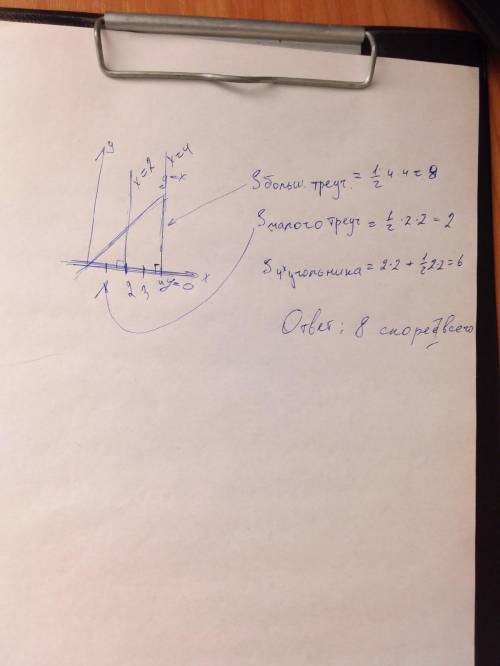 y
x=2
x=4
y=x
1 2 3 4 y=0 x
S больш. треуг. = 1/2 4·4 = 8
S малого треуг = 1/2 · 2·2 = 2
S 4х угольника = 2·2 + 1/2 2·2 = 6
Ответ: 8 скорей всего